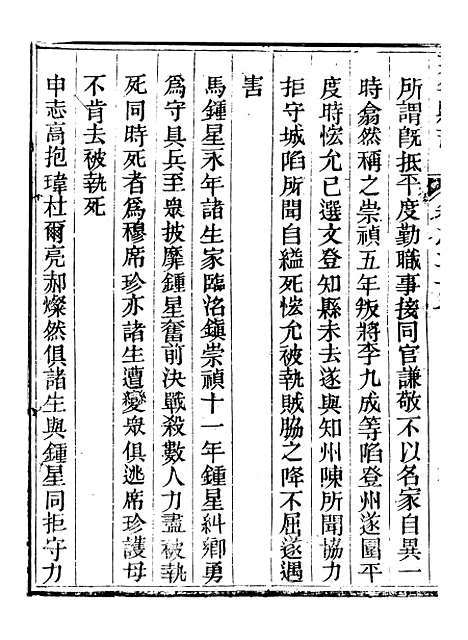 所謂既抵平度勤職事接同官謙敬不以名家自異一
時翕然稱之崇禎五年叛將李九成等陷登州遂圍平
度時恡允已選文登知縣未去遂與知州陳所聞協力
拒守城陷所聞自縊死恡允被執賊脇之降不屈遂遇
害
馬鍾星永年諸生家臨洺鎮崇禎十一年鍾星糾鄉勇
為守具兵至衆披靡鍾星奮前決戰殺數人力盡被執
死同時死者為穆席珍亦諸生遭變衆俱逃席珍護母
不肯去被執死
申志高抱瑋杜爾亮郝燦然俱諸生與鍾星同拒守力